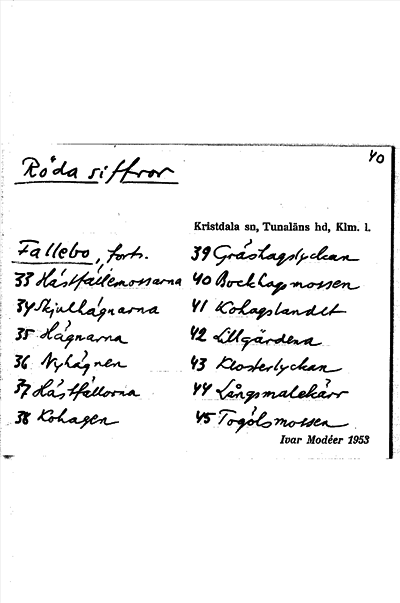 40
Röda siffror
Kristdala sn, Tunaläns hd, Klm. l.
Fallebo, forts.
33 Hästfällemossarna
34 Skjulhägnarna
35 Hägnarna
36 Nyhägnen
37 Hästfällorna
38 Kohagen
39 Gräshagslyckan
40 Bockhagsmossen
41 Kohagslandet
42 Lillgärdena
43 Klosterlyckan
44 Långsmalekärr
45 Togölsmossen
Ivar Modéer 1953